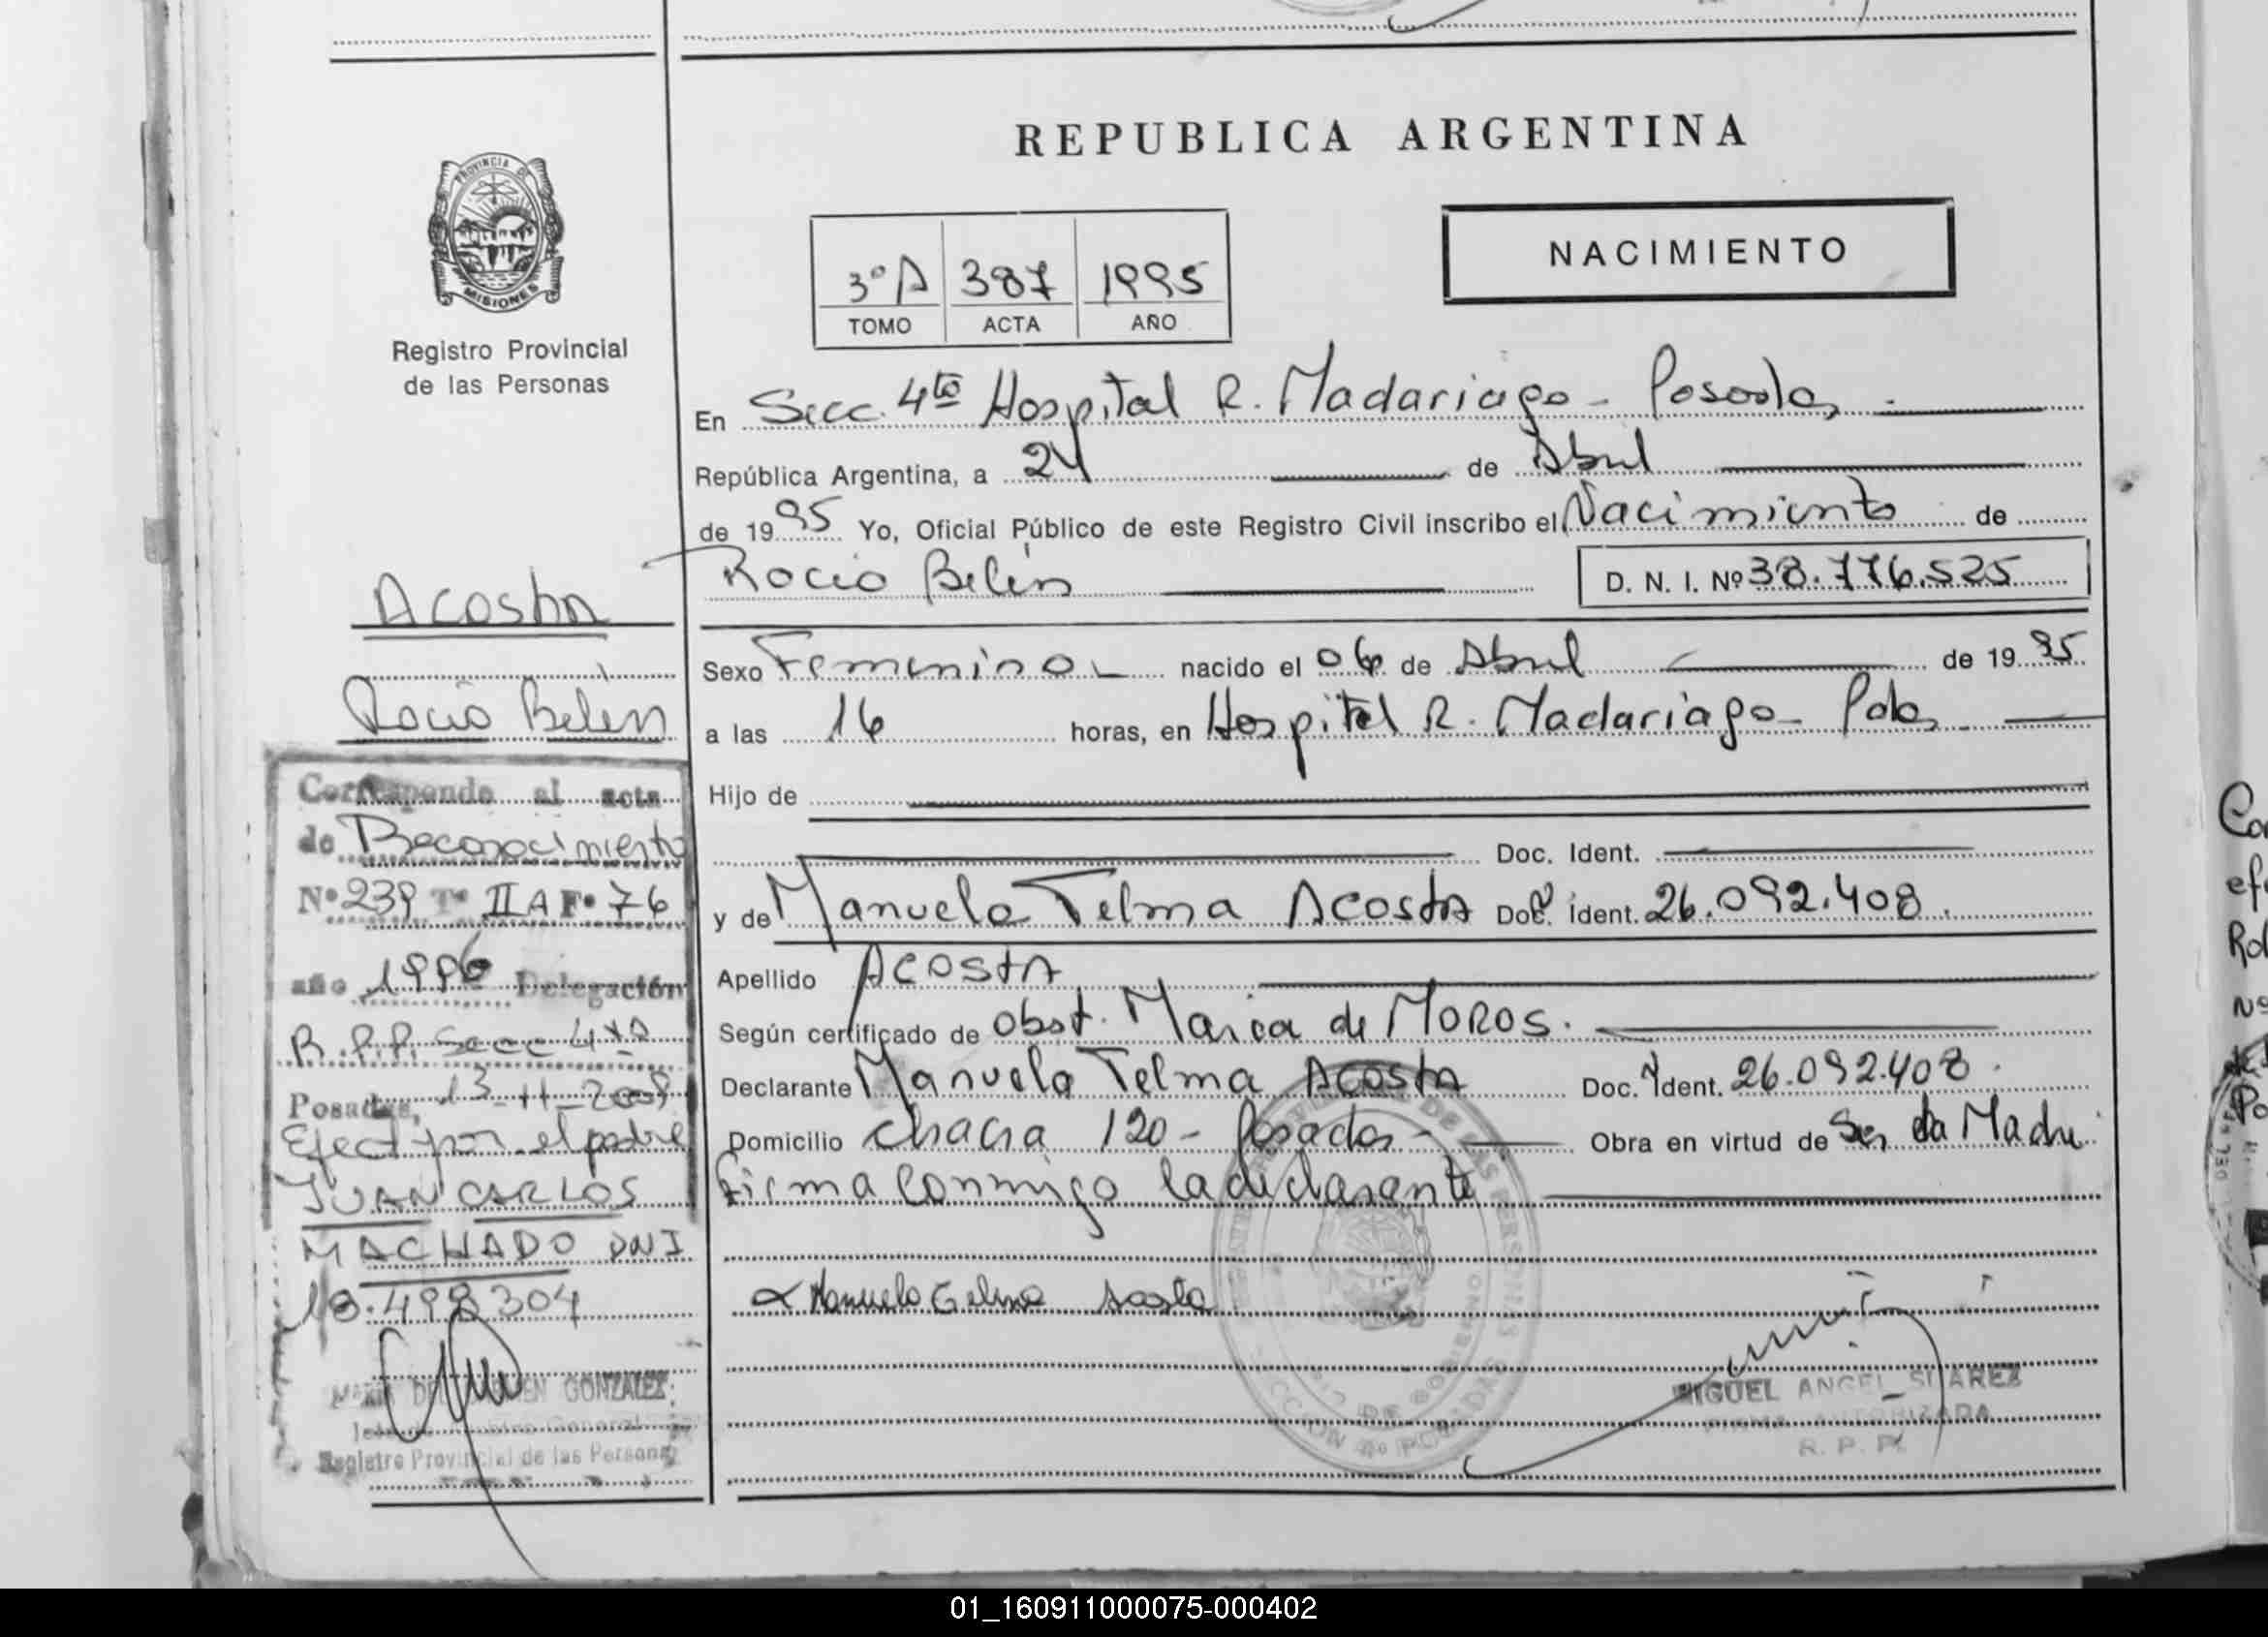 REPUBLICA ARGENTINA
NACIMIENTO
3º A 387 1995
TOMO ACTA AÑO
PROVINCIA DE
MISIONES
Registro Provincial
de las Personas
En Secc. 4ta Hospital R. Madariaga - Posadas
República Argentina, a 24 de Abril
de 1995 Yo, Oficial Público de este Registro Civil inscribo el Nacimiento de
Rocio Belén D. N. I. Nº 38.776.525
Sexo Femenino nacido el 06 de Abril de 1995
a las 16 horas, en Hospital R. Madariaga - Pdas
Hijo de
Doc. Ident.
y de Manuela Telma Acosta Doc. Ident. 26.092.408.
Apellido Acosta
Según certificado de Obst. Maria de MOROS.
Declarante Manuela Telma Acosta Doc. Ident. 26.092.408.
Domicilio chacra 120 - Posadas - Obra en virtud de Ser la Madre
Firma Conmigo la declarante
Manuela Telma Acosta
MIGUEL ANGEL SUAREZ
FIRMA AUTORIZADA
R. P. P.
Acosta
Rocio Belen
Corresponde al acta
de Reconocimiento
Nº 239 Tº II A Fº 76
año 1996 Delegación
R.P.P. Secc 4ta
Posadas, 13-11-2008
Efect por el padre
JUAN CARLOS
MACHADO DNI
18.498304
MARIA DEL CARMEN GONZALEZ
Registro Provincial de las Personas
01_160911000075-000402